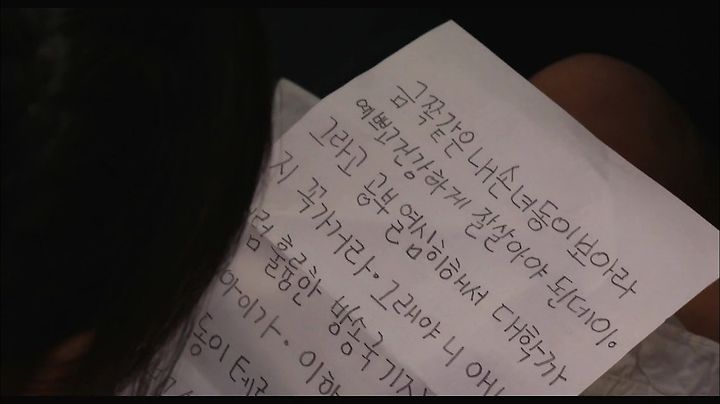 금쪽같은 내손녀동이보아라
예쁘고건강하게 잘살아야 된데이.
그라고 공부 열심히해서 대학까
지 꼭가거라. 그래야 니 애비
훌륭한 방송국기자
아이가. 이
동이